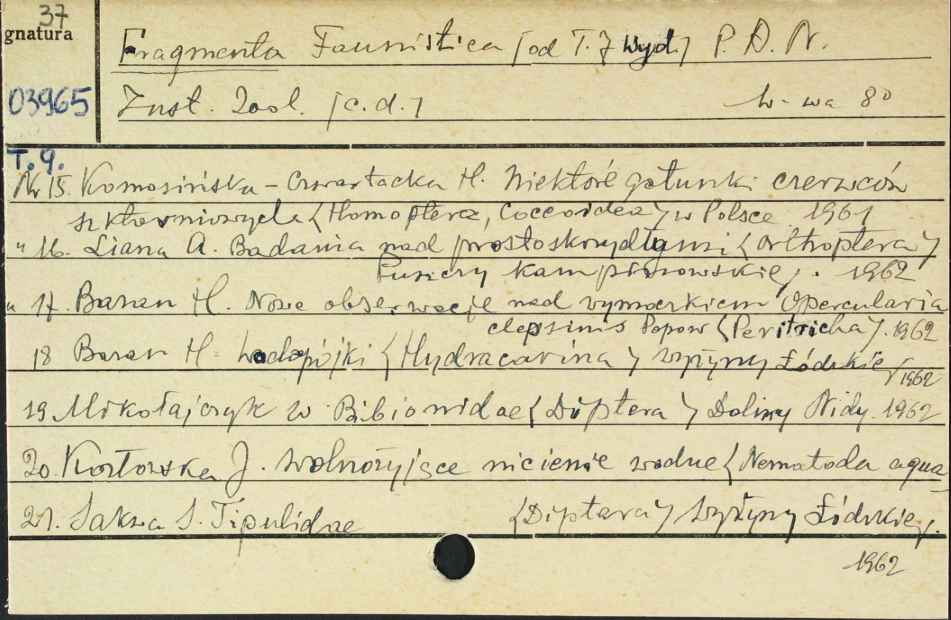 37
gnatura
Fragmenta Faunistica [od T. 7 Wyd.] P. A. N.
03965
Inst. Zool. [c.d.]
W-wa 8°
T. 9.
Nr 15. Komosińska-Czwartacka H. Niektóre gatunki czerwców
szklarniowych <Homoptera, Coccoidea> w Polsce 1961
" 16. Liana A. Badania nad prostoskrzydłymi <Orthoptera>
Puszczy Kampinowskiej. 1962
" 17. Baran H. Nowe obserwacje nad wymoczkiem Opercularia
clepsinis Popow <Peritricha>. 1962
18 Baran H. Wodopójki <Hydracarina> Wyżyny Łódzkiej 1962
19 Mikołajczyk W. Bibionidae <Diptera> Doliny Nidy. 1962
20. Wolnożyjące nicienie wodne <Nematoda aqua-
21. S. Tipulidae <Diptera> Wyżyny Łódzkiej.
1962